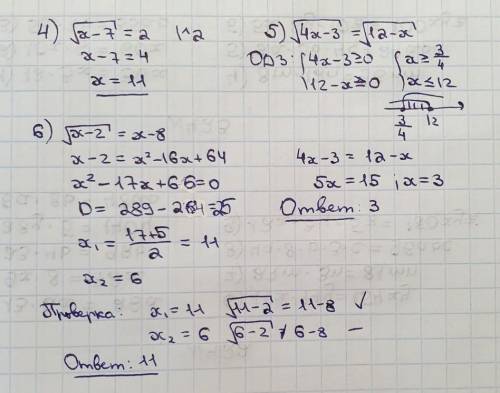 4) √x-7 = 2 |^2
x-7 = 4
x = 11
5) √4x-3 = √12-x
ОДЗ: {4x-3≥0 {x≥3/4
12-x≥0 x≤12
3/4 12
4x-3 = 12-x
5x = 15 ; x=3
Ответ: 3
6) √x-2 = x-8
x-2 = x²-16x+64
x²-17x+66=0
D = 289-264=25
x₁ = 17+5/2 = 11
x₂ = 6
Проверка: x₁ = 11 √11-2 = 11-8 ✓
x₂ = 6 √6-2 ≠ 6-8 —
Ответ: 11